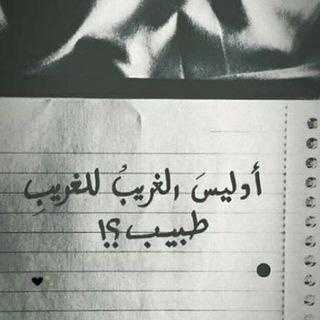 أوليسَ الغريبُ للغريبِ
طبيب؟!